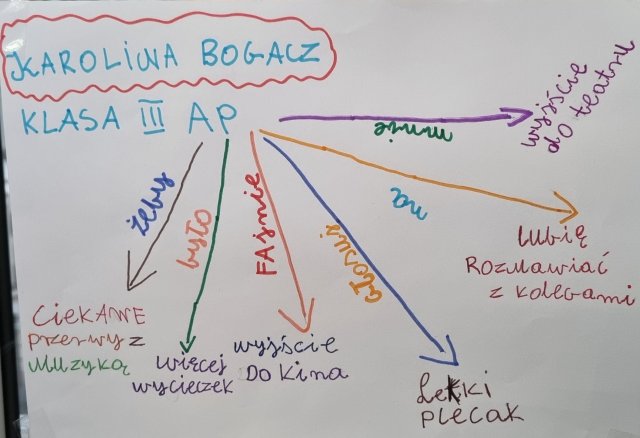 KAROLINA BOGACZ
KLASA III AP
żeby
było
FAjnie
głosuj
na
mnie
wyjście
do teatru
lubię
Rozmawiać
z kolegami
Lekki
plecak
wyjście
DO Kina
więcej
wycieczek
CIEKAWE
przerwy z
muzyką